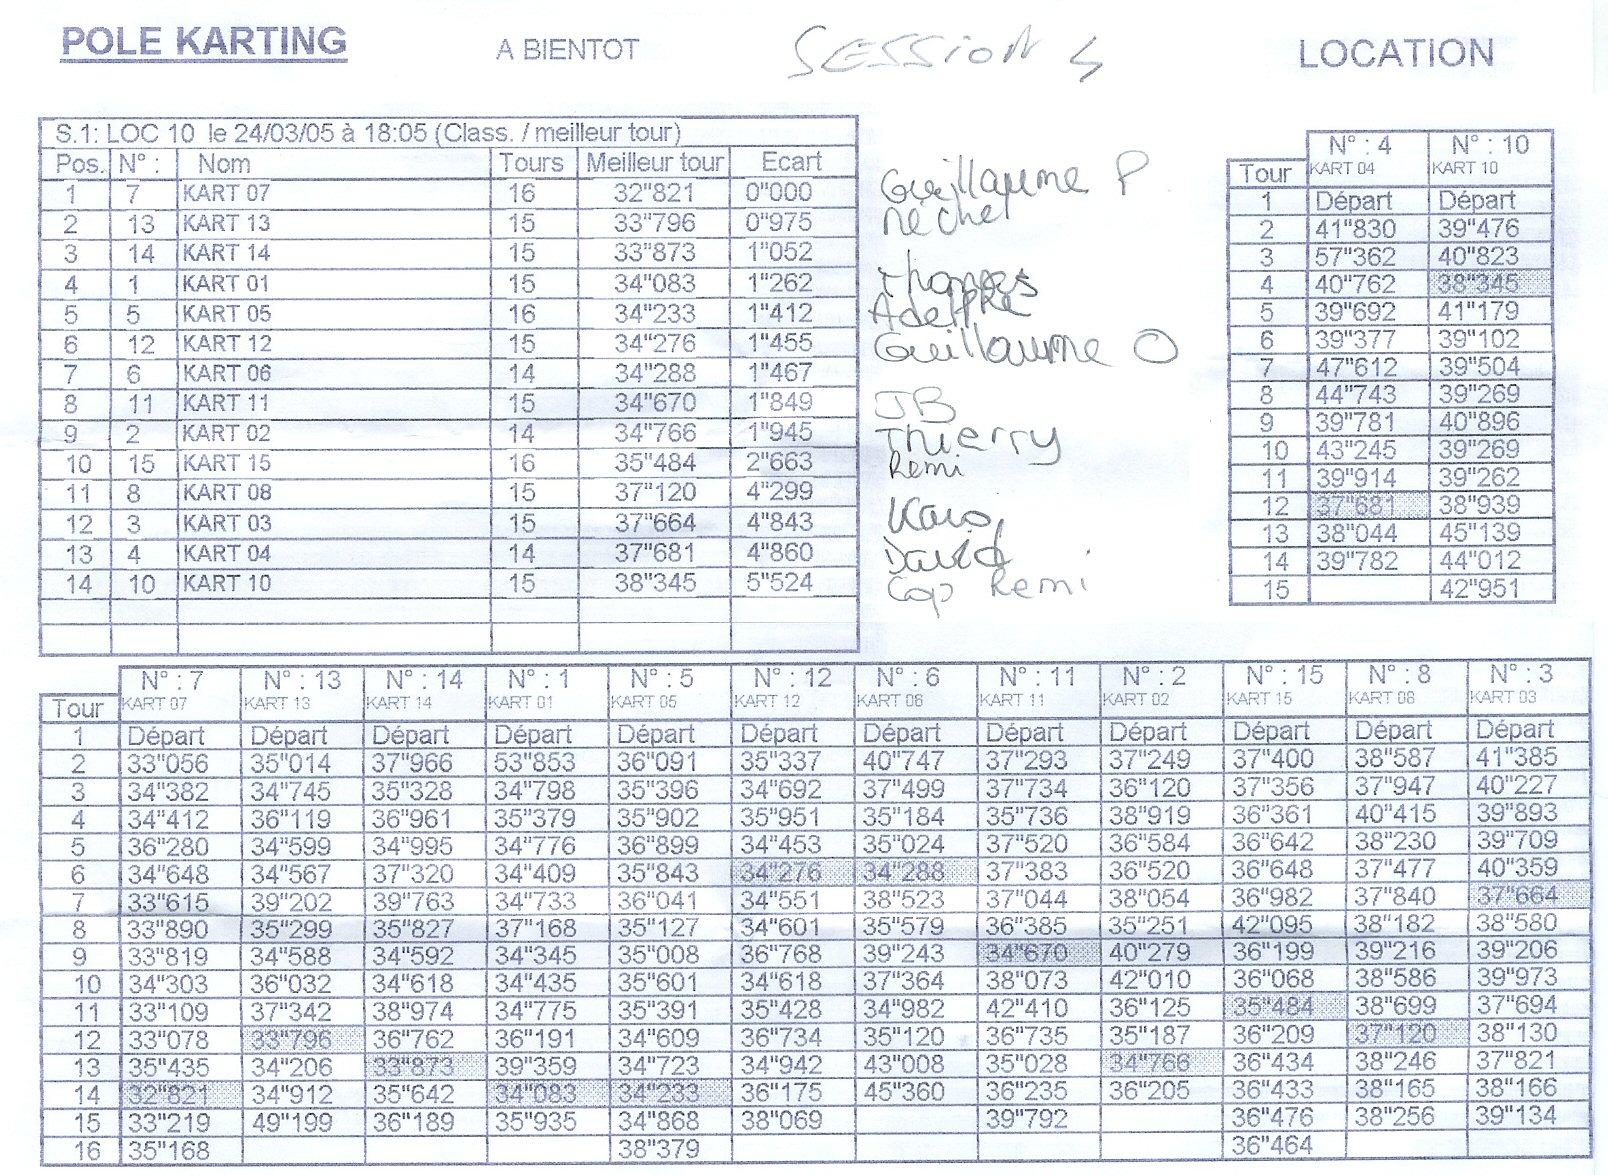 POLE KARTING A BIENTOT SESSION 4 LOCATION
S.1: LOC 10 le 24/03/05 à 18:05 (Class. / meilleur tour)
Pos. N° : Nom Tours Meilleur tour Ecart
1 7 KART 07 16 32"821 0"000 Guillaume P
2 13 KART 13 15 33"796 0"975
3 14 KART 14 15 33"873 1"052
4 1 KART 01 15 34"083 1"262 Thomas
5 5 KART 05 16 34"233 1"412
6 12 KART 12 15 34"276 1"455 Guillaume O
7 6 KART 06 14 34"288 1"467
8 11 KART 11 15 34"670 1"849 JB
9 2 KART 02 14 34"766 1"945 Thierry
10 15 KART 15 16 35"484 2"663 Remi
11 8 KART 08 15 37"120 4"299
12 3 KART 03 15 37"664 4"843
13 4 KART 04 14 37"681 4"860 David
14 10 KART 10 15 38"345 5"524 Cap Remi
N° : 4 N° : 10
Tour KART 04 KART 10
1 Départ Départ
2 41"830 39"476
3 57"362 40"823
4 40"762 38"345
5 39"692 41"179
6 39"377 39"102
7 47"612 39"504
8 44"743 39"269
9 39"781 40"896
10 43"245 39"269
11 39"914 39"262
12 37"681 38"939
13 38"044 45"139
14 39"782 44"012
15 42"951
N° : 7 N° : 13 N° : 14 N° : 1 N° : 5 N° : 12 N° : 6 N° : 11 N° : 2 N° : 15 N° : 8 N° : 3
Tour KART 07 KART 13 KART 14 KART 01 KART 05 KART 12 KART 06 KART 11 KART 02 KART 15 KART 08 KART 03
1 Départ Départ Départ Départ Départ Départ Départ Départ Départ Départ Départ Départ
2 33"056 35"014 37"966 53"853 36"091 35"337 40"747 37"293 37"249 37"400 38"587 41"385
3 34"382 34"745 35"328 34"798 35"396 34"692 37"499 37"734 36"120 37"356 37"947 40"227
4 34"412 36"119 36"961 35"379 35"902 35"951 35"184 35"736 38"919 36"361 40"415 39"893
5 36"280 34"599 34"995 34"776 36"899 34"453 35"024 37"520 36"584 36"642 38"230 39"709
6 34"648 34"567 37"320 34"409 35"843 34"276 34"288 37"383 36"520 36"648 37"477 40"359
7 33"615 39"202 39"763 34"733 36"041 34"551 38"523 37"044 38"054 36"982 37"840 37"664
8 33"890 35"299 35"827 37"168 35"127 34"601 35"579 36"385 35"251 42"095 38"182 38"580
9 33"819 34"588 34"592 34"345 35"008 36"768 39"243 34"670 40"279 36"199 39"216 39"206
10 34"303 36"032 34"618 34"435 35"601 34"618 37"364 38"073 42"010 36"068 38"586 39"973
11 33"109 37"342 38"974 34"775 35"391 35"428 34"982 42"410 36"125 35"484 38"699 37"694
12 33"078 33"796 36"762 36"191 34"609 36"734 35"120 36"735 35"187 36"209 37"120 38"130
13 35"435 34"206 33"873 39"359 34"723 34"942 43"008 35"028 34"766 36"434 38"246 37"821
14 32"821 34"912 35"642 34"083 34"233 36"175 45"360 36"235 36"205 36"433 38"165 38"166
15 33"219 49"199 36"189 35"935 34"868 38"069 39"792 36"476 38"256 39"134
16 35"168 38"379 36"464